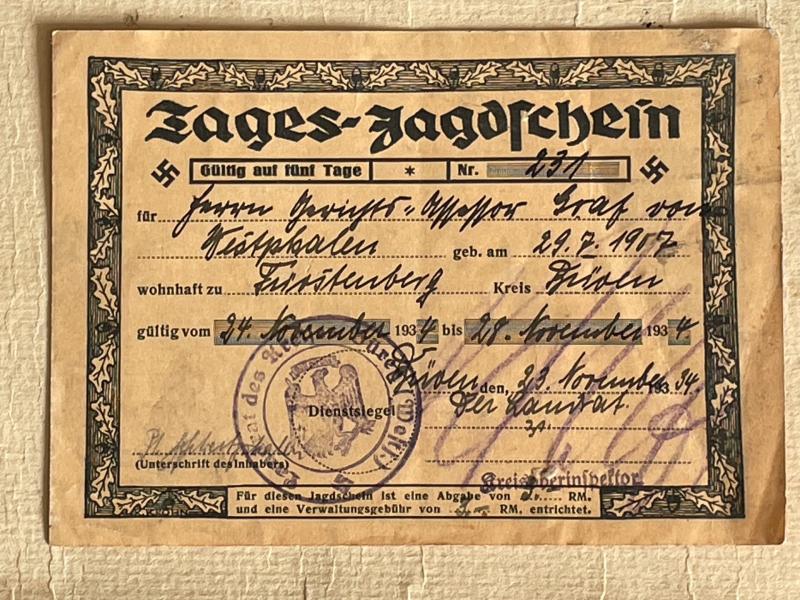 Tages-Jagdschein
Gültig auf fünf Tage * Nr. 231
für Herrn Gerichts-Assessor Graf von
Westphalen geb. am 29.7.1907
wohnhaft zu Fürstenberg Kreis Büren
gültig vom 24. November 1934 bis 28. November 1934
Büren den, 23. November 1934.
Der Landrat
Dienstsiegel
(Unterschrift des Inhabers)
Kreisoberinspektor
Für diesen Jagdschein ist eine Abgabe von RM.
und eine Verwaltungsgebühr von RM. entrichtet.